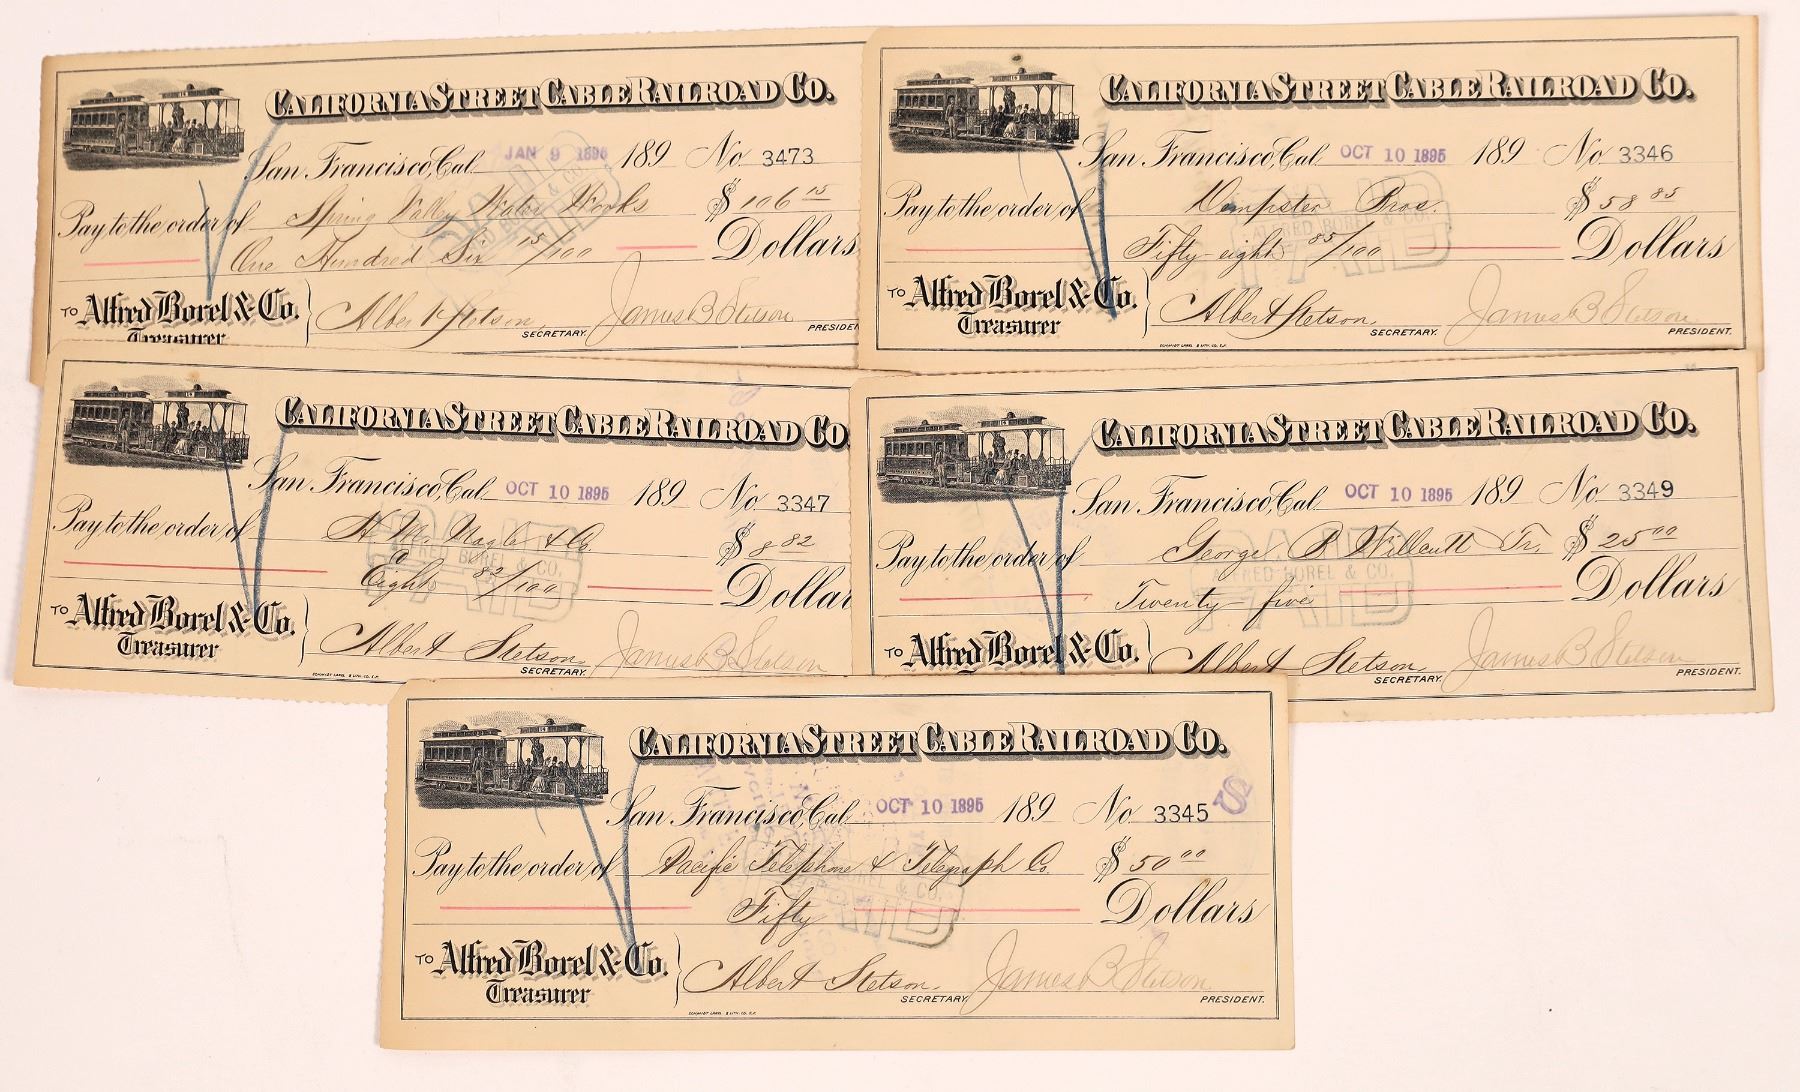 CALIFORNIA STREET CABLE RAILROAD CO.
San Francisco, Cal. JAN 9 1896 189 No 3473
Pay to the order of Spring Valley Water Works $ 106 15
One Hundred Six 15/100 Dollars
TO Alfred Borel & Co. Albert Stetson James B Stetson
Treasurer SECRETARY. PRESIDEN
CALIFORNIA STREET CABLE RAILROAD CO.
San Francisco, Cal. OCT 10 1895 189 No 3346
Pay to the order of Dempster Bros. $ 58 85
Fifty eight 85/100 Dollars
ALFRED BOREL & CO.
PAID
TO Alfred Borel & Co. Albert Stetson, James B Stetson
Treasurer SECRETARY. PRESIDENT.
SCHMIDT LABEL & LITH. CO. S.F.
CALIFORNIA STREET CABLE RAILROAD CO
San Francisco, Cal. OCT 10 1895 189 No 3347
Pay to the order of H. M. Nagle & Co. $ 8 82
ALFRED BOREL & CO.
PAID
Eight 82/100 Dollar
TO Alfred Borel & Co. Albert Stetson, James B Stetson
Treasurer SECRETARY.
SCHMIDT LABEL & LITH. CO. S.F.
CALIFORNIA STREET CABLE RAILROAD CO.
San Francisco, Cal. OCT 10 1895 189 No 3349
Pay to the order of George P. Willcutt Jr. $ 25 00
ALFRED BOREL & CO.
PAID
Twenty five Dollars
TO Alfred Borel & Co. Albert Stetson, James B Stetson
SECRETARY. PRESIDENT.
CALIFORNIA STREET CABLE RAILROAD CO.
San Francisco, Cal. OCT 10 1895 189 No 3345 S
Pay to the order of Pacific Telephone & Telegraph Co. $ 50 00
Fifty Dollars
PAID
TO Alfred Borel & Co. Albert Stetson, James B Stetson
Treasurer SECRETARY. PRESIDENT.
SCHMIDT LABEL & LITH. CO. S.F.